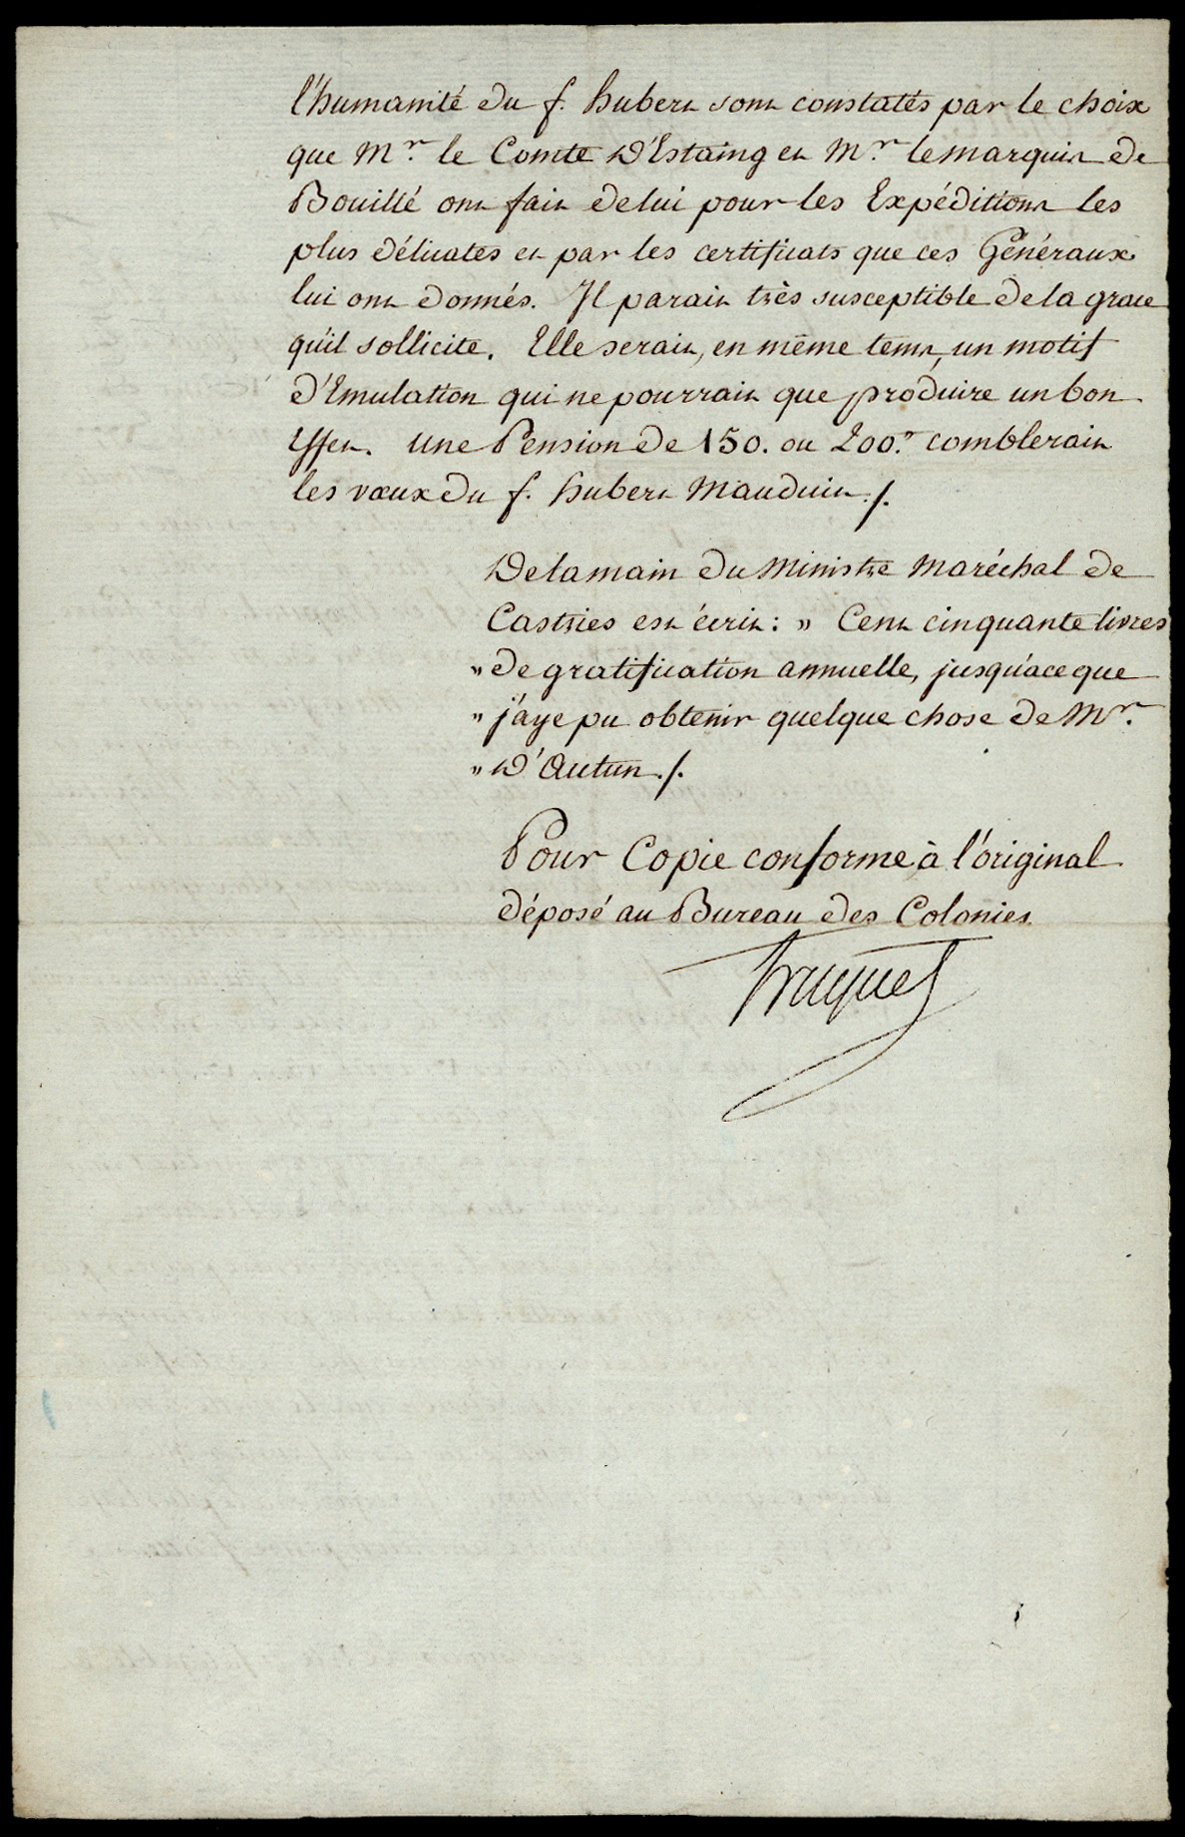 l'humanité du f. hubert sont constatés par le choix
que Mr. le Comte D'Estaing et Mr. le marquis de
Bouillé ont fait de lui pour les Expéditions les
plus délicates et par les certificats que ces Généraux
lui ont donnés. Il parait très susceptible de la grace
qu'il sollicite. Elle serait, en même tems, un motif
d'Emulation qui ne pourrait que produire un bon
Effet. Une Pension de 150. ou 200.# comblerait
les vœux du f. hubert Mauduit ./.
De la main du Ministre Maréchal de
Castries est écrit : » Cent cinquante livres
» de gratification annuelle, jusqu'à ce que
» j'aye pu obtenir quelque chose de Mr.
» D'Autun ./.
Pour Copie conforme à l'original
déposé au Bureau des Colonies
Truguet